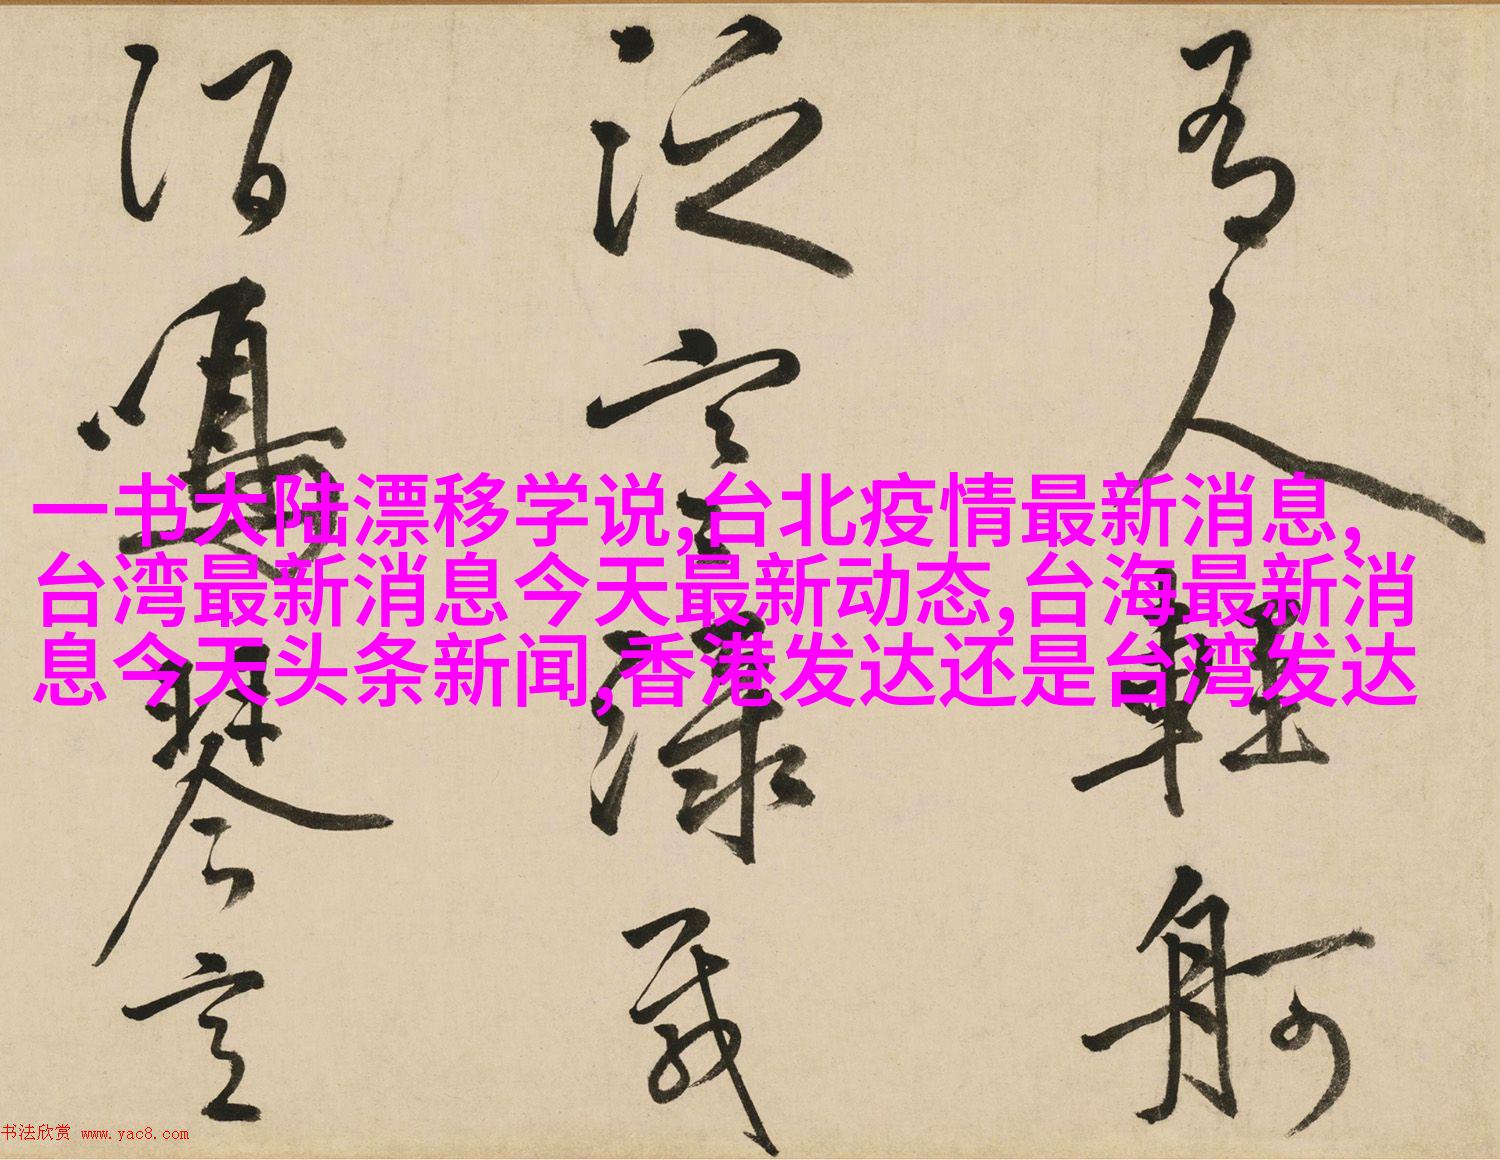 一书大陆漂移学说,台北疫情最新消息,
台湾最新消息今天最新动态,台海最新消
息今天头条新闻,香港发达还是台湾发达
有人輕射
泛言深
鳴琴
书法欣赏 www.yac8.com